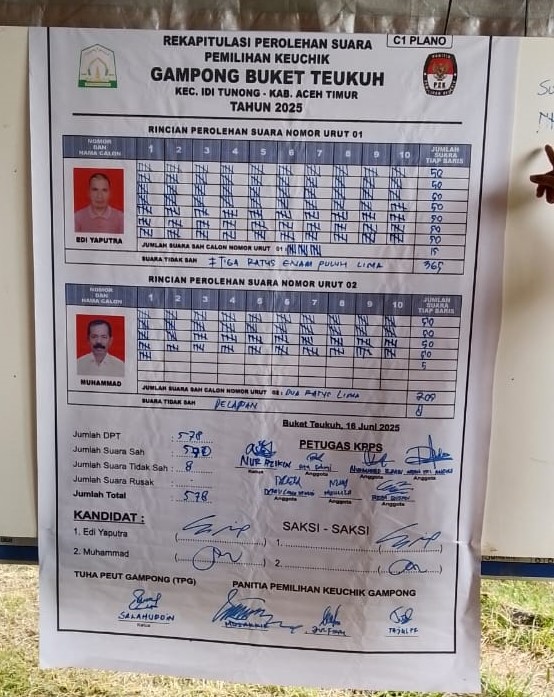 REKAPITULASI PEROLEHAN SUARA
C1 PLANO
PEMILIHAN KEUCHIK
GAMPONG BUKET TEUKUH
KEC. IDI TUNONG - KAB. ACEH TIMUR
TAHUN 2025
PZK
RINCIAN PEROLEHAN SUARA NOMOR URUT 01
NOMOR DAN NAMA CALON 1 2 3 4 5 6 7 8 9 10 JUMLAH SUARA TIAP BARIS
50
50
50
50
50
50
50
EDI YAPUTRA
JUMLAH SUARA SAH CALON NOMOR URUT 01 : 15
SUARA TIDAK SAH TIGA RATUS ENAM PULUH LIMA 365
RINCIAN PEROLEHAN SUARA NOMOR URUT 02
NOMOR DAN NAMA CALON 1 2 3 4 5 6 7 8 9 10 JUMLAH SUARA TIAP BARIS
50
50
50
50
5
MUHAMMAD
JUMLAH SUARA SAH CALON NOMOR URUT 02 : DUA RATUS LIMA
SUARA TIDAK SAH DELAPAN 8
Buket Teukuh, 16 Juni 2025
Jumlah DPT : 578
PETUGAS KPPS
Jumlah Suara Sah :
Jumlah Suara Tidak Sah : 8
Jumlah Suara Rusak : -
Jumlah Total : 578
Ketua Anggota Anggota Anggota
Anggota Anggota Anggota
KANDIDAT :
SAKSI - SAKSI
1. Edi Yaputra (
) 1.
2. Muhammad (
) 2.
TUHA PEUT GAMPONG (TPG)
PANITIA PEMILIHAN KEUCHIK GAMPONG
SALAHUDDIN
Ketua